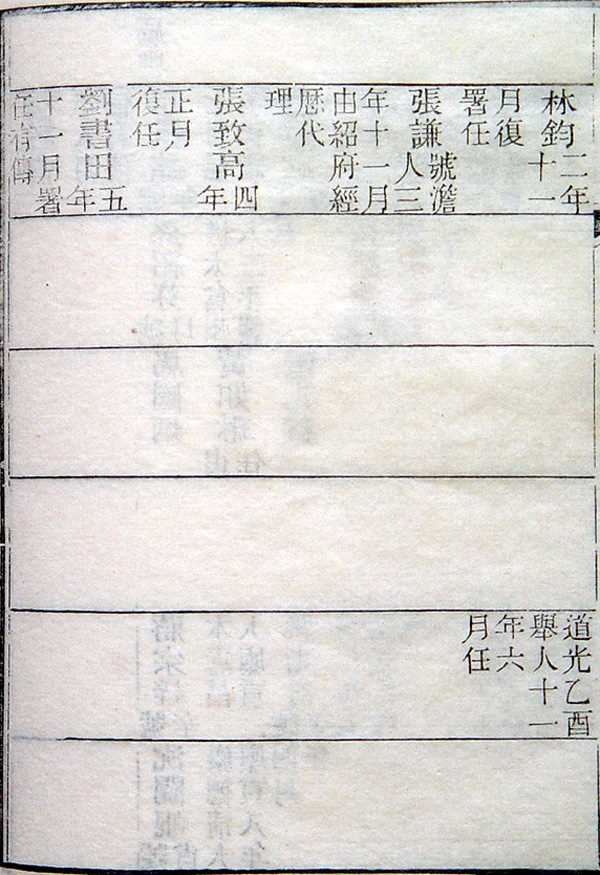 林鈞二年
十一
月復
署任
張謙號澹
人三
年十一月
由紹府經
厯代
理
張致高四
年
正月
復任
劉書田五
年
十一月署
任有傳
道光乙酉
舉人十一
年六
月任